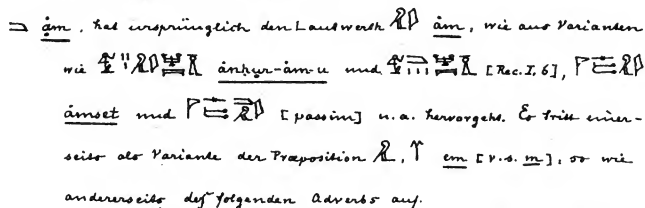 ȧm, hat ursprünglich den Lautwerth ȧm, wie aus Varianten
wie ȧnḥur-ȧm-u und [Rec. I, 6],
ȧmset und [passim] u. a. hervorgeht. Es tritt einer-
seits als Variante der Praeposition em [v. s. m], so wie
andererseits des folgenden Adverbs auf.